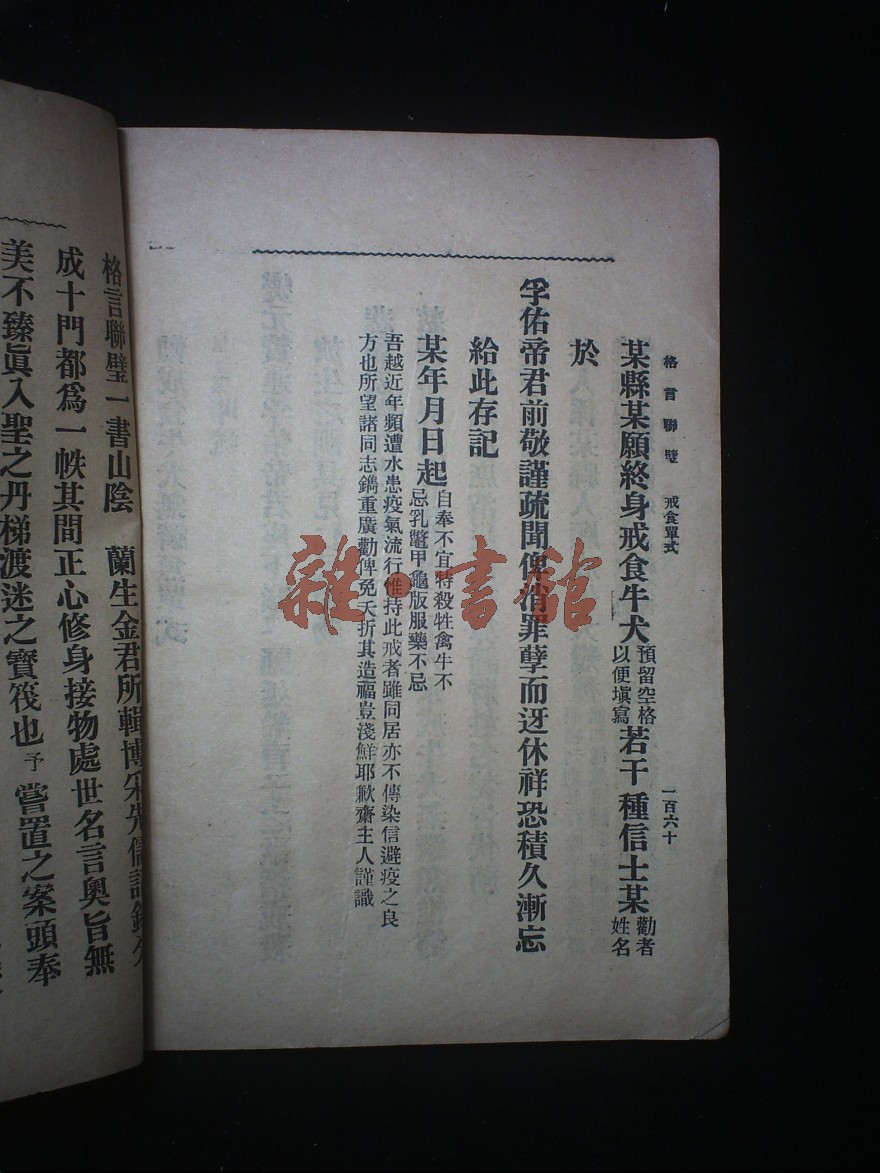 格言聯璧 戒食單式 一百六十
某縣某願終身戒食牛犬預留空格以便塡寫若干種信士某勸者姓名
於
孚佑帝君前敬謹疏聞俾消罪孽而迓休祥恐積久漸忘
給此存記
某年月日起自奉不宜特殺牲禽牛不忌乳鼈甲龜版服藥不忌
吾越近年頻遭水患疫氣流行惟持此戒者雖同居亦不傳染信避疫之良
方也所望諸同志鐫重廣勸俾免夭折其造福豈淺鮮耶歉齋主人謹識
格言聯璧一書山陰 蘭生金君所輯博采先儒語錄分
成十門都爲一帙其間正心修身接物處世名言奧旨無
美不臻眞入聖之丹梯渡迷之寶筏也予嘗置之案頭奉
雜·書館